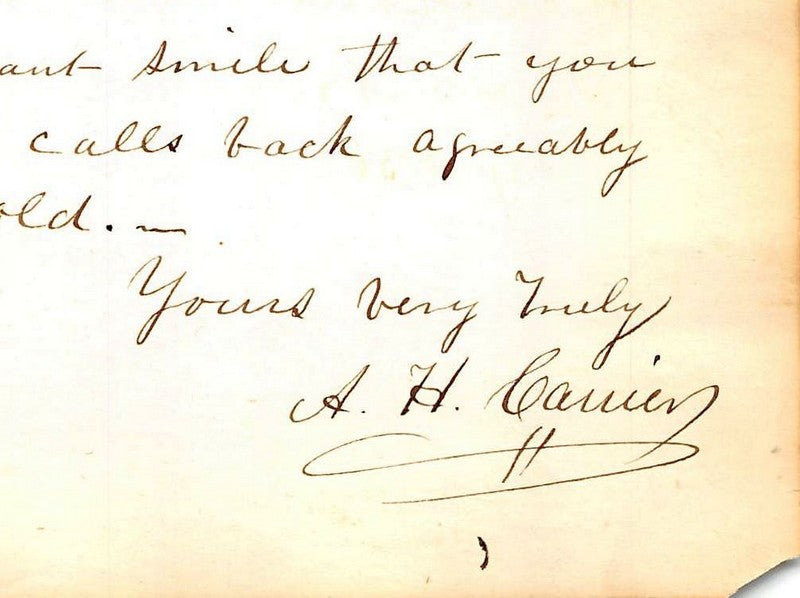 ant smile that you
calls back agreeably
old. —
Yours very truly
A. H. Carrier